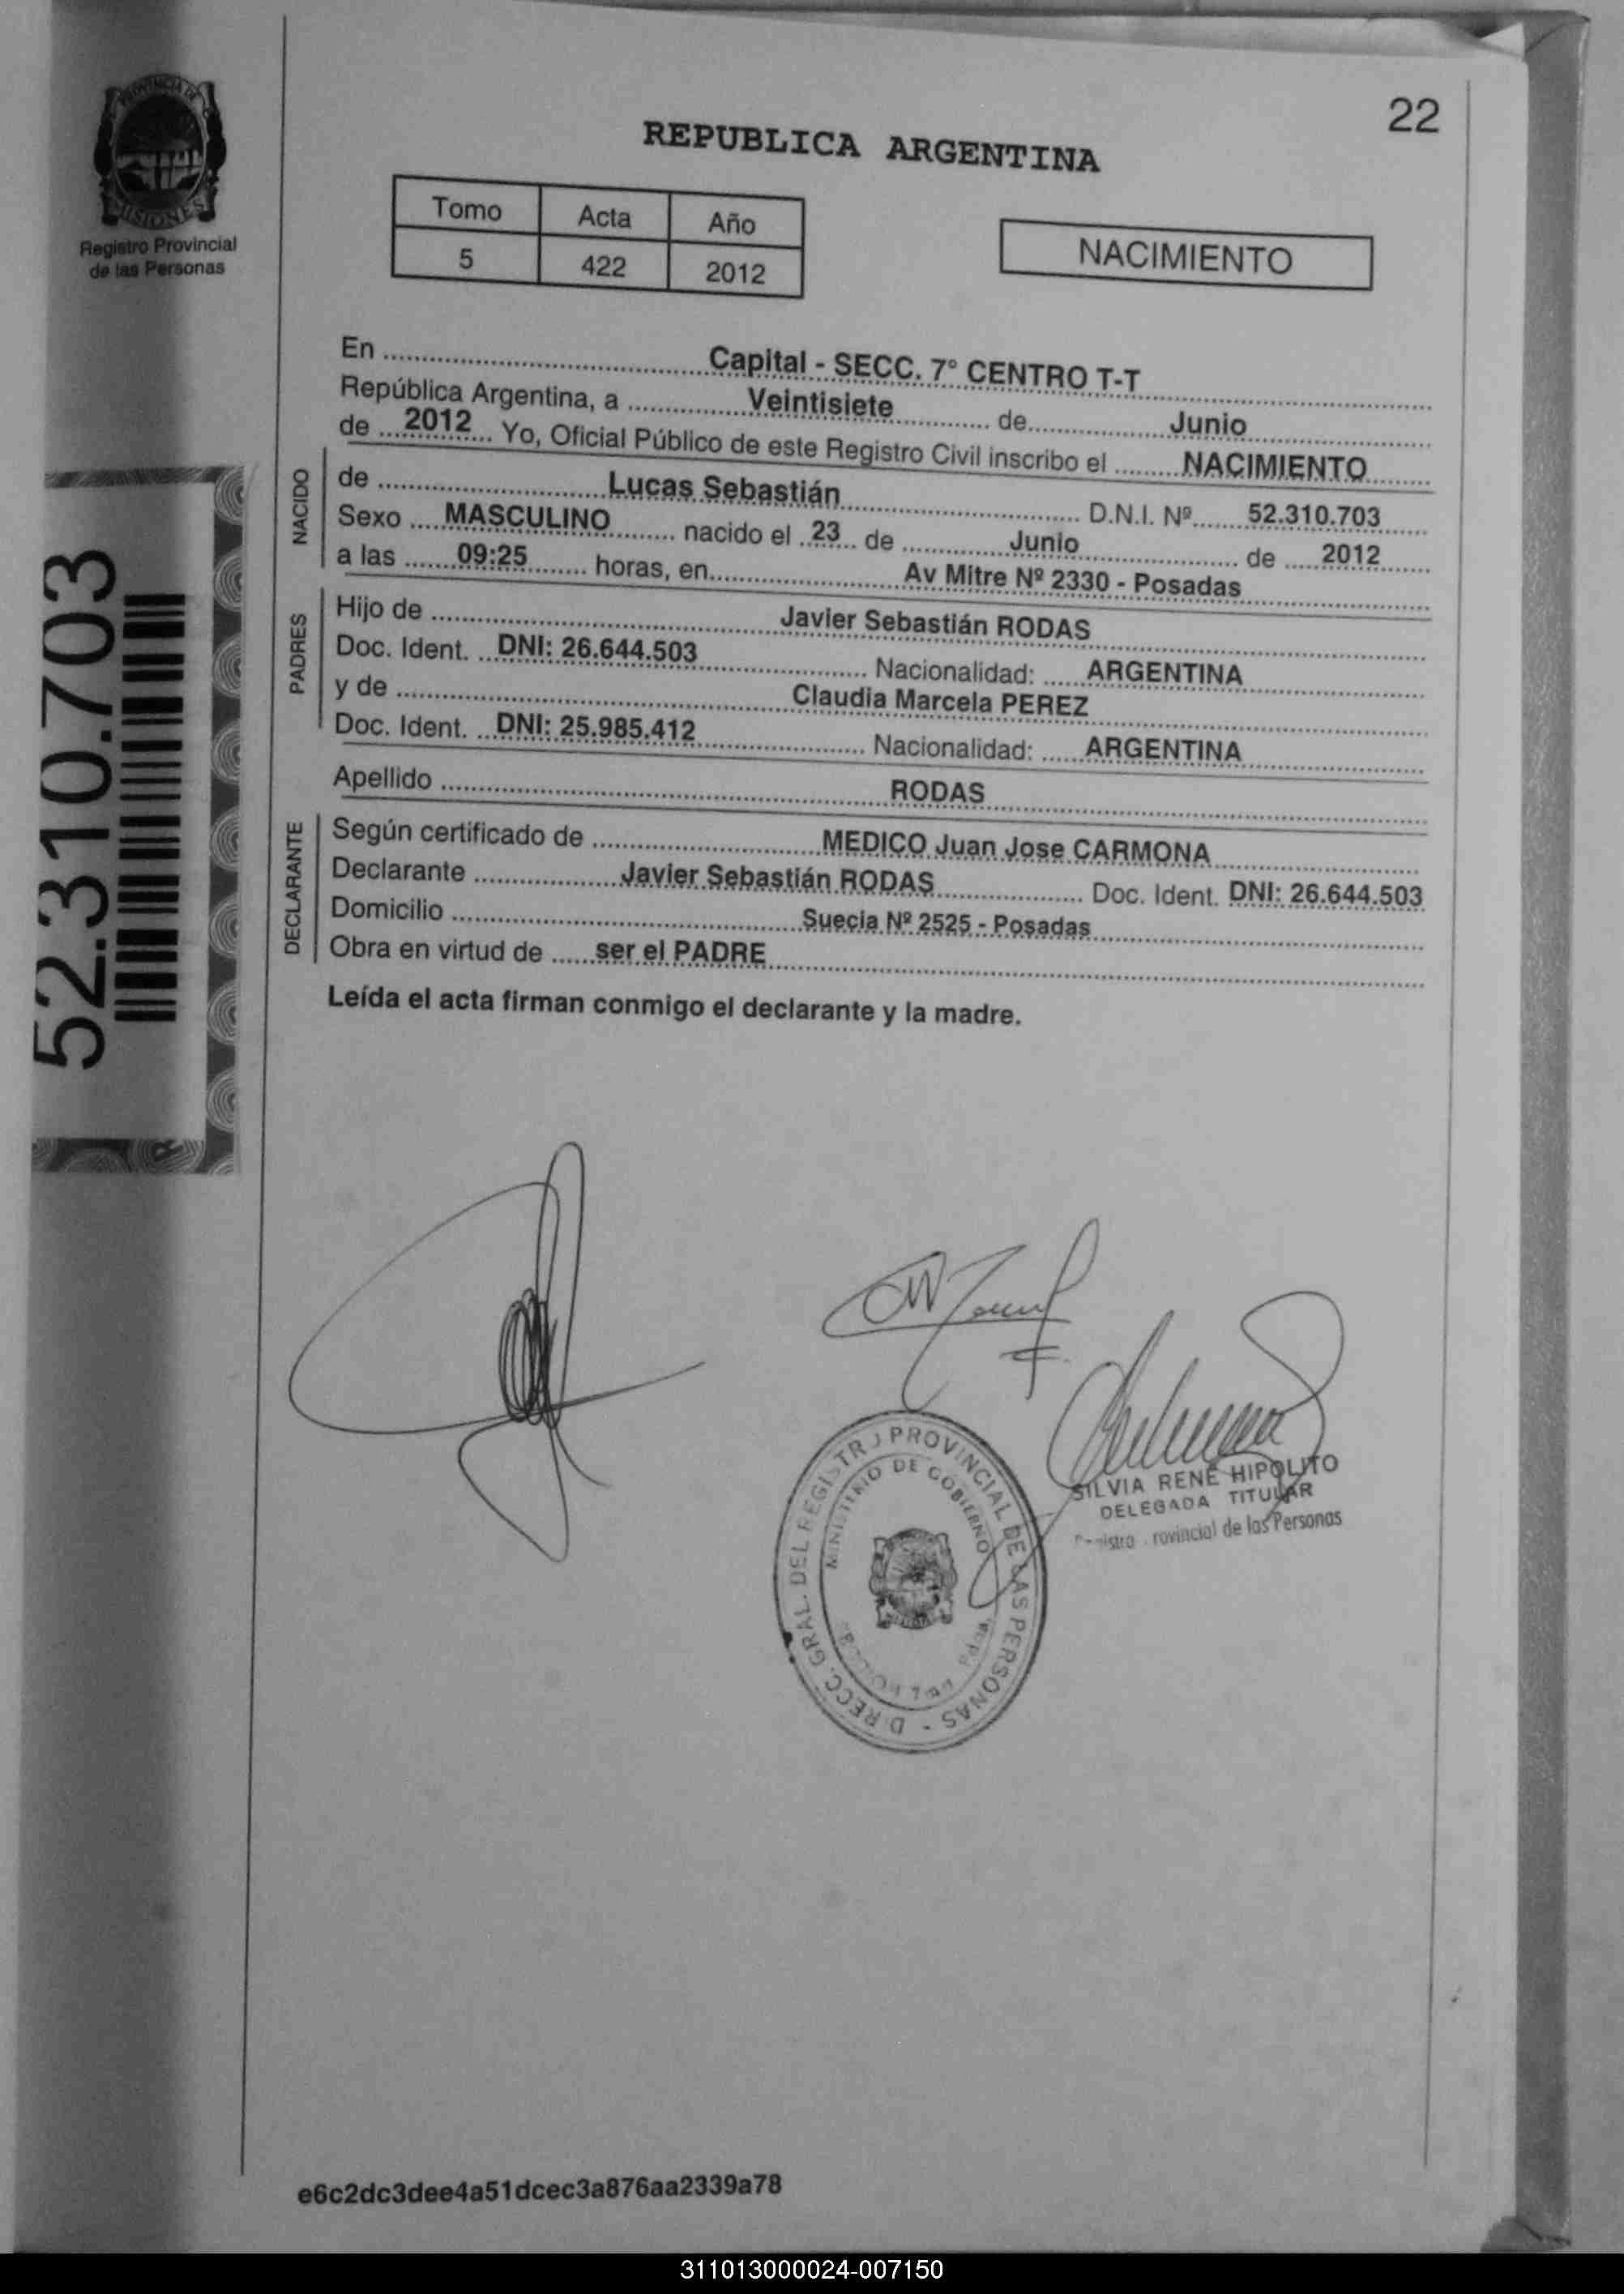 22
PROVINCIA DE
MISIONES
Registro Provincial
de las Personas
REPUBLICA ARGENTINA
Tomo Acta Año
5 422 2012
NACIMIENTO
En Capital - SECC. 7° CENTRO T-T
República Argentina, a Veintisiete de Junio
de 2012 Yo, Oficial Público de este Registro Civil inscribo el NACIMIENTO
NACIDO
de Lucas Sebastián D.N.I. Nº 52.310.703
Sexo MASCULINO nacido el 23 de Junio de 2012
a las 09:25 horas, en Av Mitre Nº 2330 - Posadas
PADRES
Hijo de Javier Sebastián RODAS
Doc. Ident. DNI: 26.644.503 Nacionalidad: ARGENTINA
y de Claudia Marcela PEREZ
Doc. Ident. DNI: 25.985.412 Nacionalidad: ARGENTINA
Apellido RODAS
DECLARANTE
Según certificado de MEDICO Juan Jose CARMONA
Declarante Javier Sebastián RODAS Doc. Ident. DNI: 26.644.503
Domicilio Suecia Nº 2525 - Posadas
Obra en virtud de ser el PADRE
Leída el acta firman conmigo el declarante y la madre.
52.310.703
SILVIA RENE HIPOLITO
DELEGADA TITULAR
de las Personas
DIRECC. GRAL. DEL REGISTRO PROVINCIAL DE LAS PERSONAS -
MINISTERIO DE GOBIERNO
e6c2dc3dee4a51dcec3a876aa2339a78
311013000024-007150